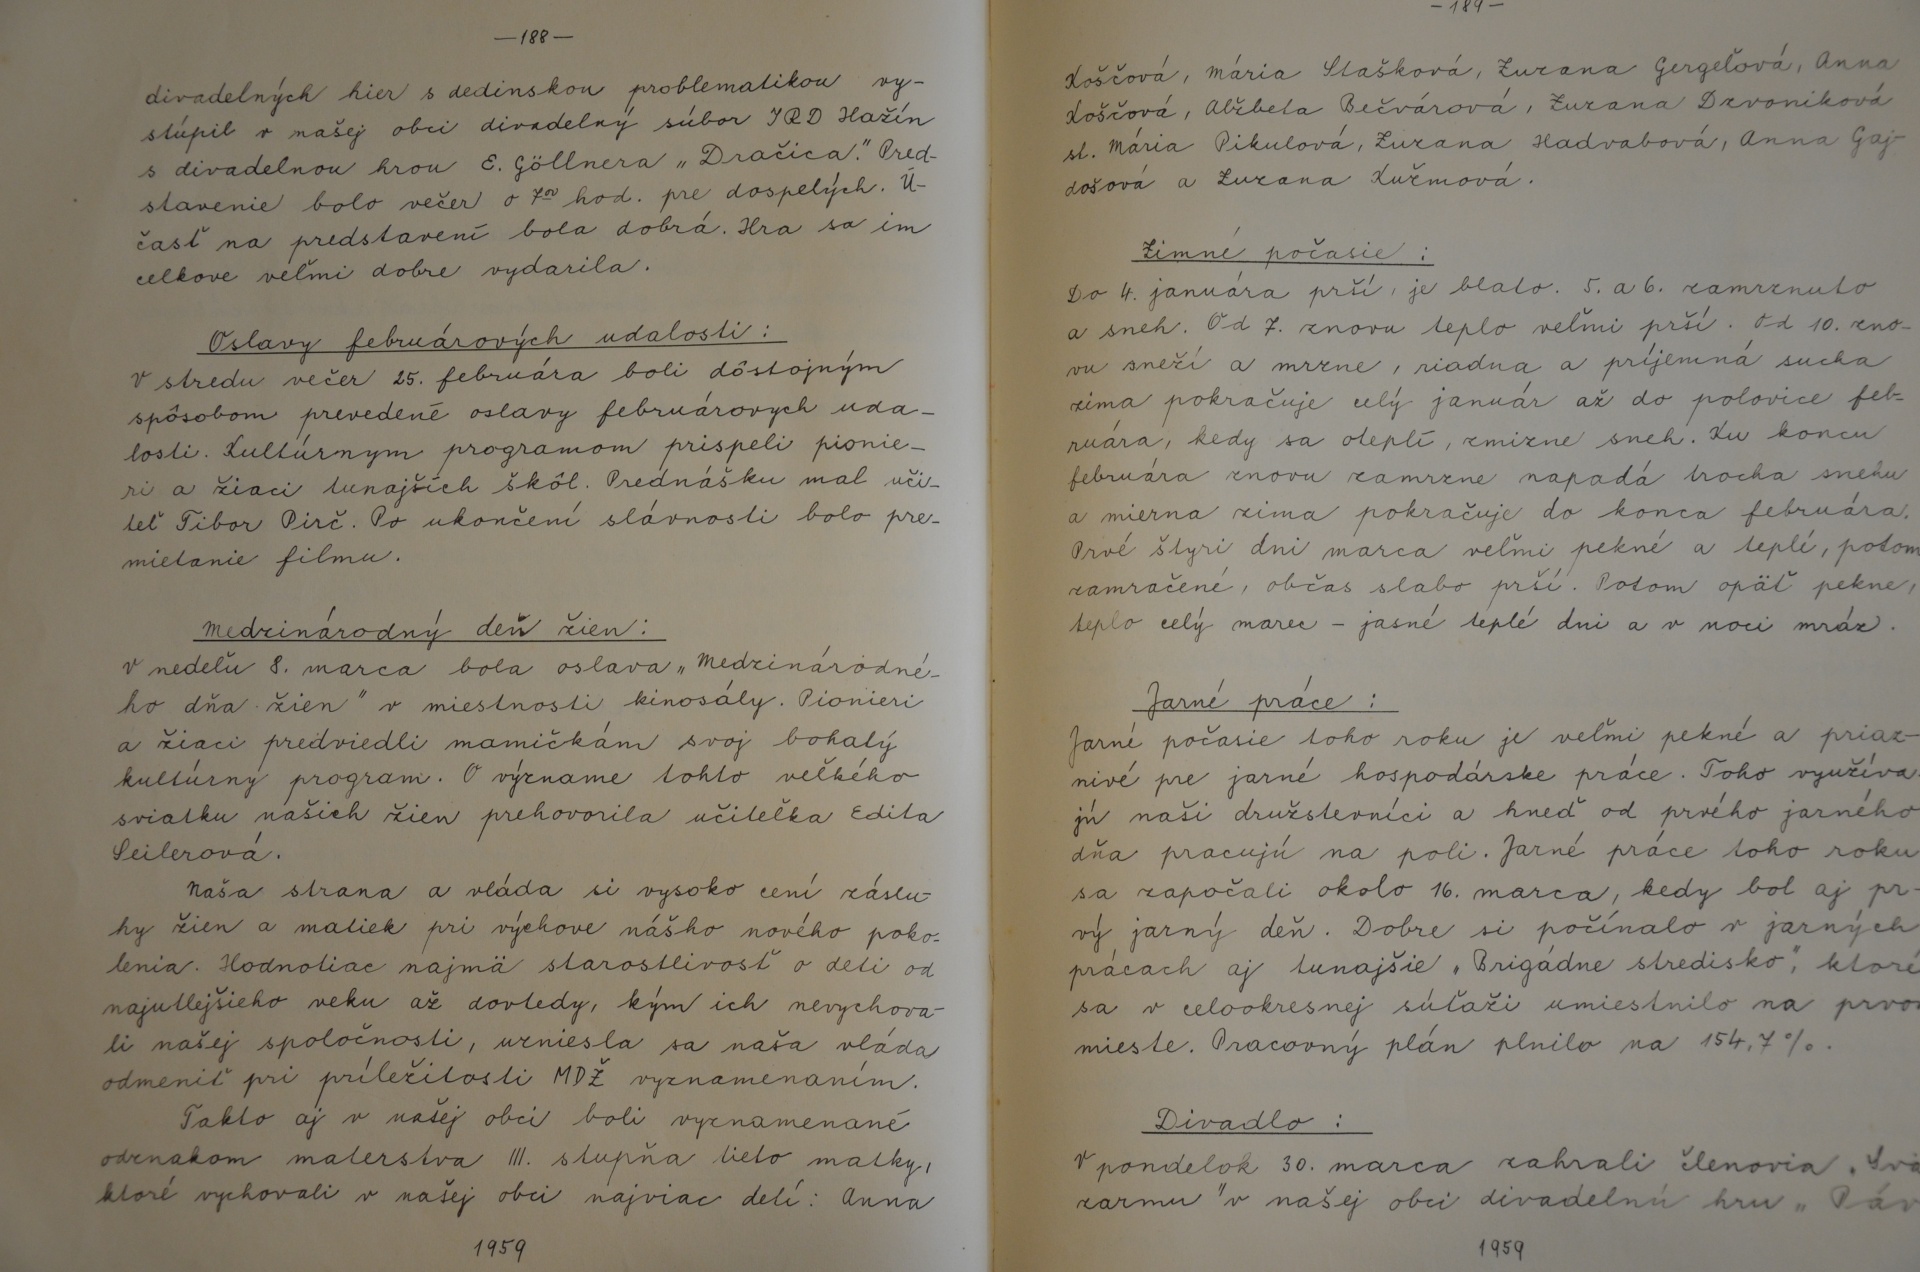 —188—
divadelných hier s dedinskou problematikou vy-
stúpil v našej obci divadelný súbor JRD Hažín
s divadelnou hrou E. Göllnera „Dračica." Pred-
stavenie bolo večer o 7⁰⁰ hod. pre dospelých. Ú-
časť na predstavení bola dobrá. Hra sa im
celkove veľmi dobre vydarila.
Oslavy februárových udalosti:
V stredu večer 25. februára boli dôstojným
spôsobom prevedené oslavy februárovych uda-
losti. Kultúrnym programom prispeli pionie-
ri a žiaci tunajších škôl. Prednášku mal uči-
teľ Tibor Pirč. Po ukončení slávnosti bolo pre-
mietanie filmu.
Medzinárodný deň žien:
V nedeľu 8. marca bola oslava „Medzinárodné-
ho dňa žien" v miestnosti kinosály. Pionieri
a žiaci predviedli mamičkám svoj bohatý
kultúrny program. O význame tohto veľkého
sviatku našich žien prehovorila učiteľka Edita
Seilerová.
Naša strana a vláda si vysoko cení záslu-
hy žien a matiek pri výchove nášho nového poko-
lenia. Hodnotiac najmä starostlivosť o deti od
najutlejšieho veku až dovtedy, kým ich nevychova-
li našej spoločnosti, uzniesla sa naša vláda
odmeniť pri príležitosti MDŽ vyznamenaním.
Takto aj v našej obci boli vyznamenané
odznakom materstva III. stupňa tieto matky,
ktoré vychovali v našej obci najviac detí: Anna
1959
—189—
Koščová, Mária Stašková, Zuzana Gergeľová, Anna
Koščová, Alžbeta Bečvárová, Zuzana Dzvoniková
st. Mária Pikulová, Zuzana Hadvabová, Anna Gaj-
došová a Zuzana Kužmová.
Zimné počasie:
Do 4. januára prší, je blato. 5. a 6. zamrznuto
a sneh. Od 7. znovu teplo veľmi prší. Od 10. zno-
vu sneží a mrzne, riadna a príjemná suchá
zima pokračuje celý január až do polovice feb-
ruára, kedy sa oteplí, zmizne sneh. Ku koncu
februára znovu zamrzne napadá trocha snehu
a mierna zima pokračuje do konca februára.
Prvé štyri dni marca veľmi pekné a teplí, potom
zamračené, občas slabo prší. Potom opäť pekne,
teplo celý marec – jasné teplé dni a v noci mráz.
Jarné práce:
Jarné počasie toho roku je veľmi pekné a priaz-
nivé pre jarné hospodárske práce. Toho využíva-
jú naši družstevníci a hneď od prvého jarného
dňa pracujú na poli. Jarné práce toho roku
sa započali okolo 16. marca, kedy bol aj pr-
vý jarný deň. Dobre si počínalo v jarných
prácach aj tunajšie „Brigádne stredisko", ktoré
sa v celookresnej súťaži umiestnilo na prvom
mieste. Pracovný plán plnilo na 154,7%.
Divadlo:
V pondelok 30. marca zahrali členovia
zarmu" v našej obci divadelnú hru „
1959